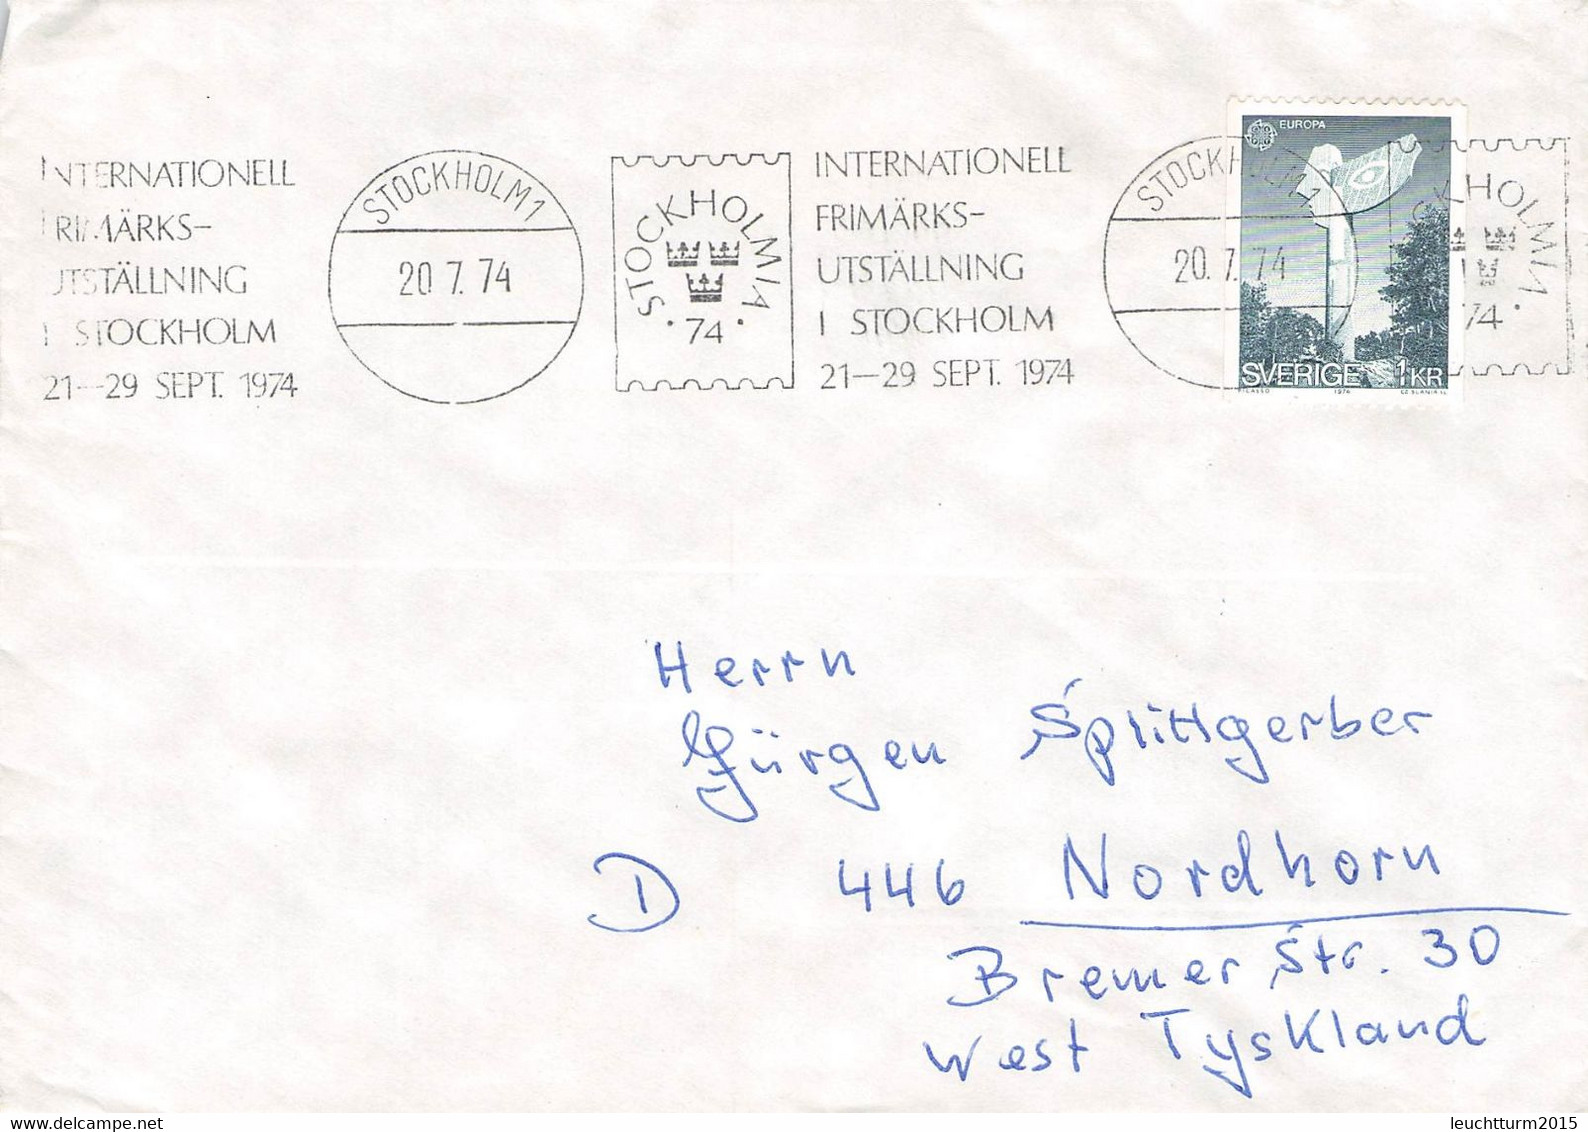 INTERNATIONELL
FRIMÄRKS-
UTSTÄLLNING
I STOCKHOLM
21—29 SEPT. 1974
STOCKHOLM 1
20 7. 74
STOCKHOLMIA
· 74 ·
INTERNATIONELL
FRIMÄRKS-
UTSTÄLLNING
I STOCKHOLM
21—29 SEPT. 1974
STOCKHOLM 1
20. 7. 74
EUROPA
SVERIGE 1 KR
PICASSO 1974 CZ SLANIA SC
CKHOLMIA
74 ·
Herrn
Jürgen Splittgerber
D 446 Nordhorn
Bremer Str. 30
West Tyskland
leuchtturm2015